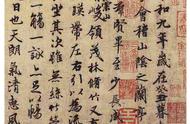 和九年歲在癸丑
會稽山陰之蘭亭
賢畢至少長
崇山
峻領茂林脩竹
帶左右引以為流
其次雖無絲竹
一觴一詠亦足以暢
日也天朗氣清惠風